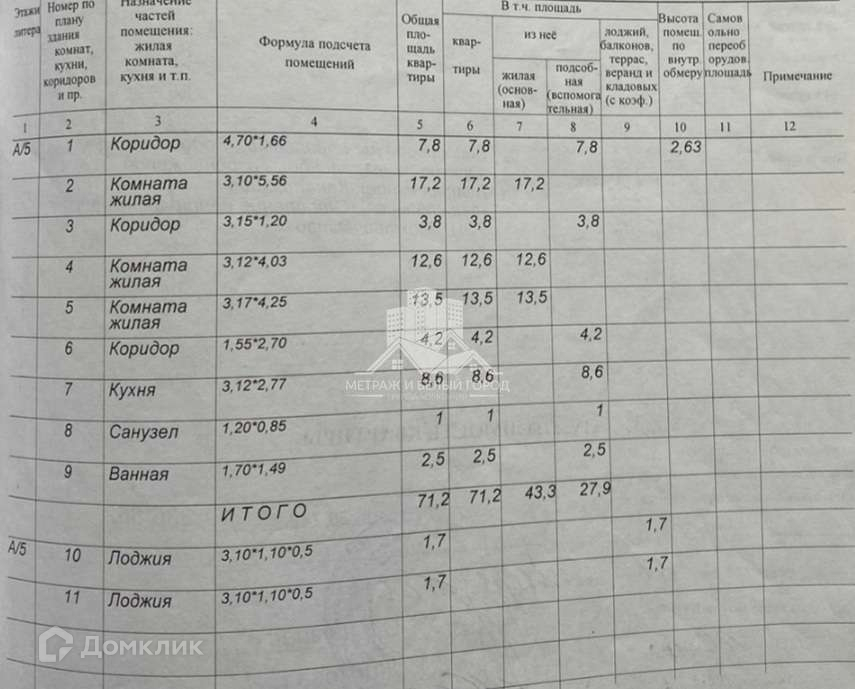 Этажи литера | Номер по плану здания комнат, кухни, коридоров и пр. | Назначение частей помещения: жилая комната, кухня и т.п. | Формула подсчета помещений | Общая пло- щадь квар- тиры | В т.ч. площадь | квар- тиры | из неё | жилая (основ- ная) | подсоб- ная (вспомога тельная) | лоджий, балконов, террас, веранд и кладовых (с коэф.) | Высота помещ. по внутр. обмеру | Самов ольно переоб орудов. площадь | Примечание
1 2 3 4 5 6 7 8 9 10 11 12
А/5 1 Коридор 4,70*1,66 7,8 7,8 7,8 2,63
2 Комната жилая 3,10*5,56 17,2 17,2 17,2
3 Коридор 3,15*1,20 3,8 3,8 3,8
4 Комната жилая 3,12*4,03 12,6 12,6 12,6
5 Комната жилая 3,17*4,25 13,5 13,5 13,5
6 Коридор 1,55*2,70 4,2 4,2 4,2
7 Кухня 3,12*2,77 8,6 8,6 8,6
МЕТРАЖ И БЕЛЫЙ ГОРОД
8 Санузел 1,20*0,85 1 1 1
9 Ванная 1,70*1,49 2,5 2,5 2,5
ИТОГО 71,2 71,2 43,3 27,9
А/5 10 Лоджия 3,10*1,10*0,5 1,7 1,7
11 Лоджия 3,10*1,10*0,5 1,7 1,7
Домклик